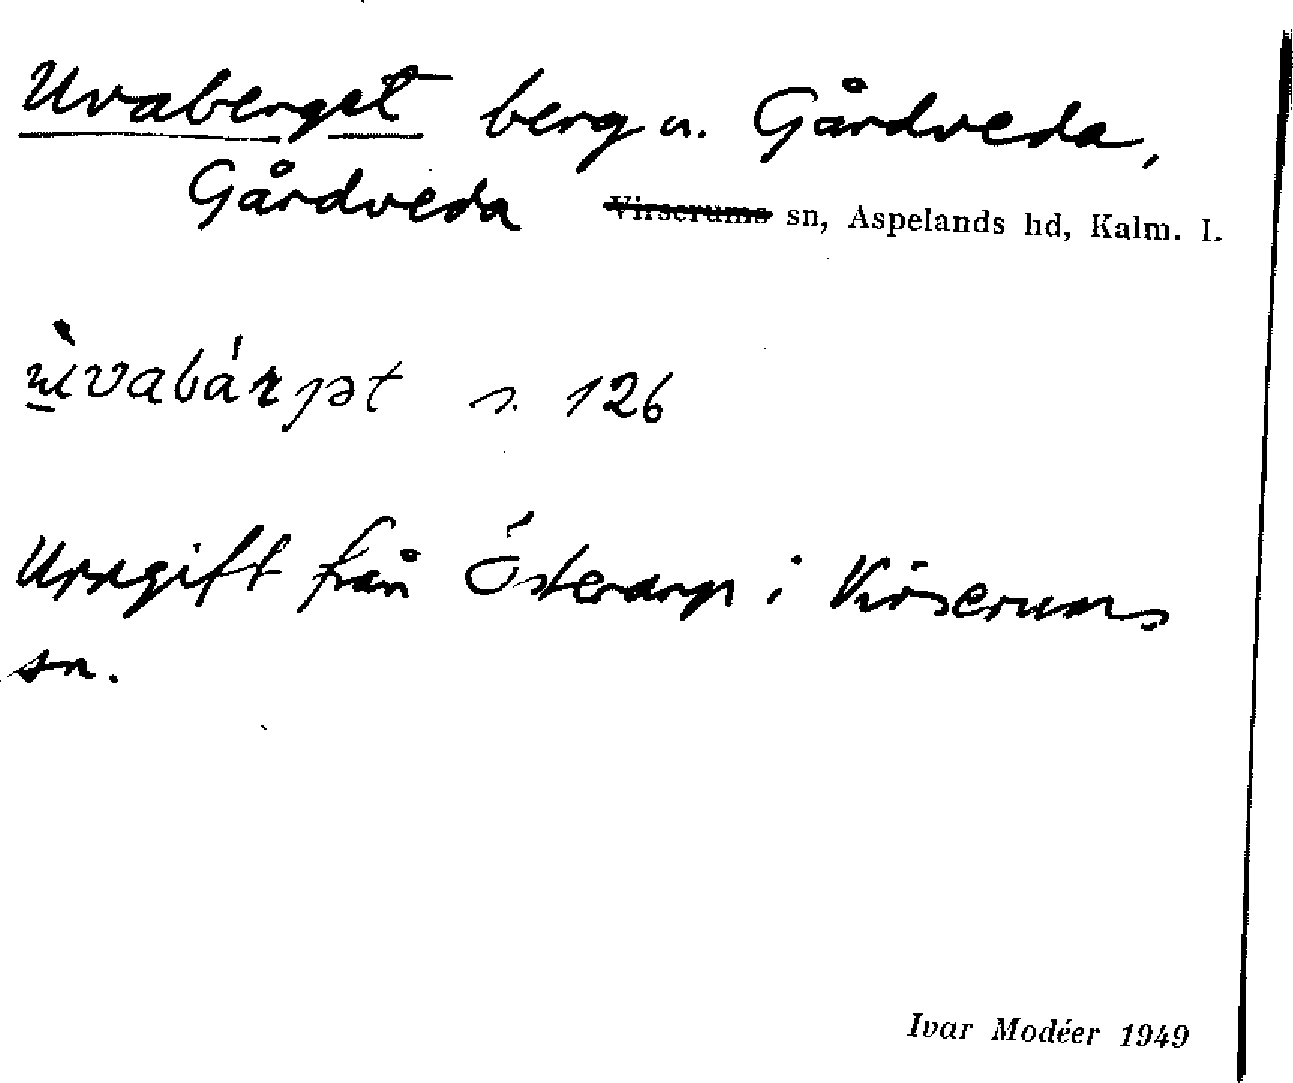 Uvaberget berg u. Gårdveda,
Gårdveda Virserums sn, Aspelands hd, Kalm. l.
s. 126
Uppgift från Österarp i Virserums
sn.
Ivar Modéer 1949